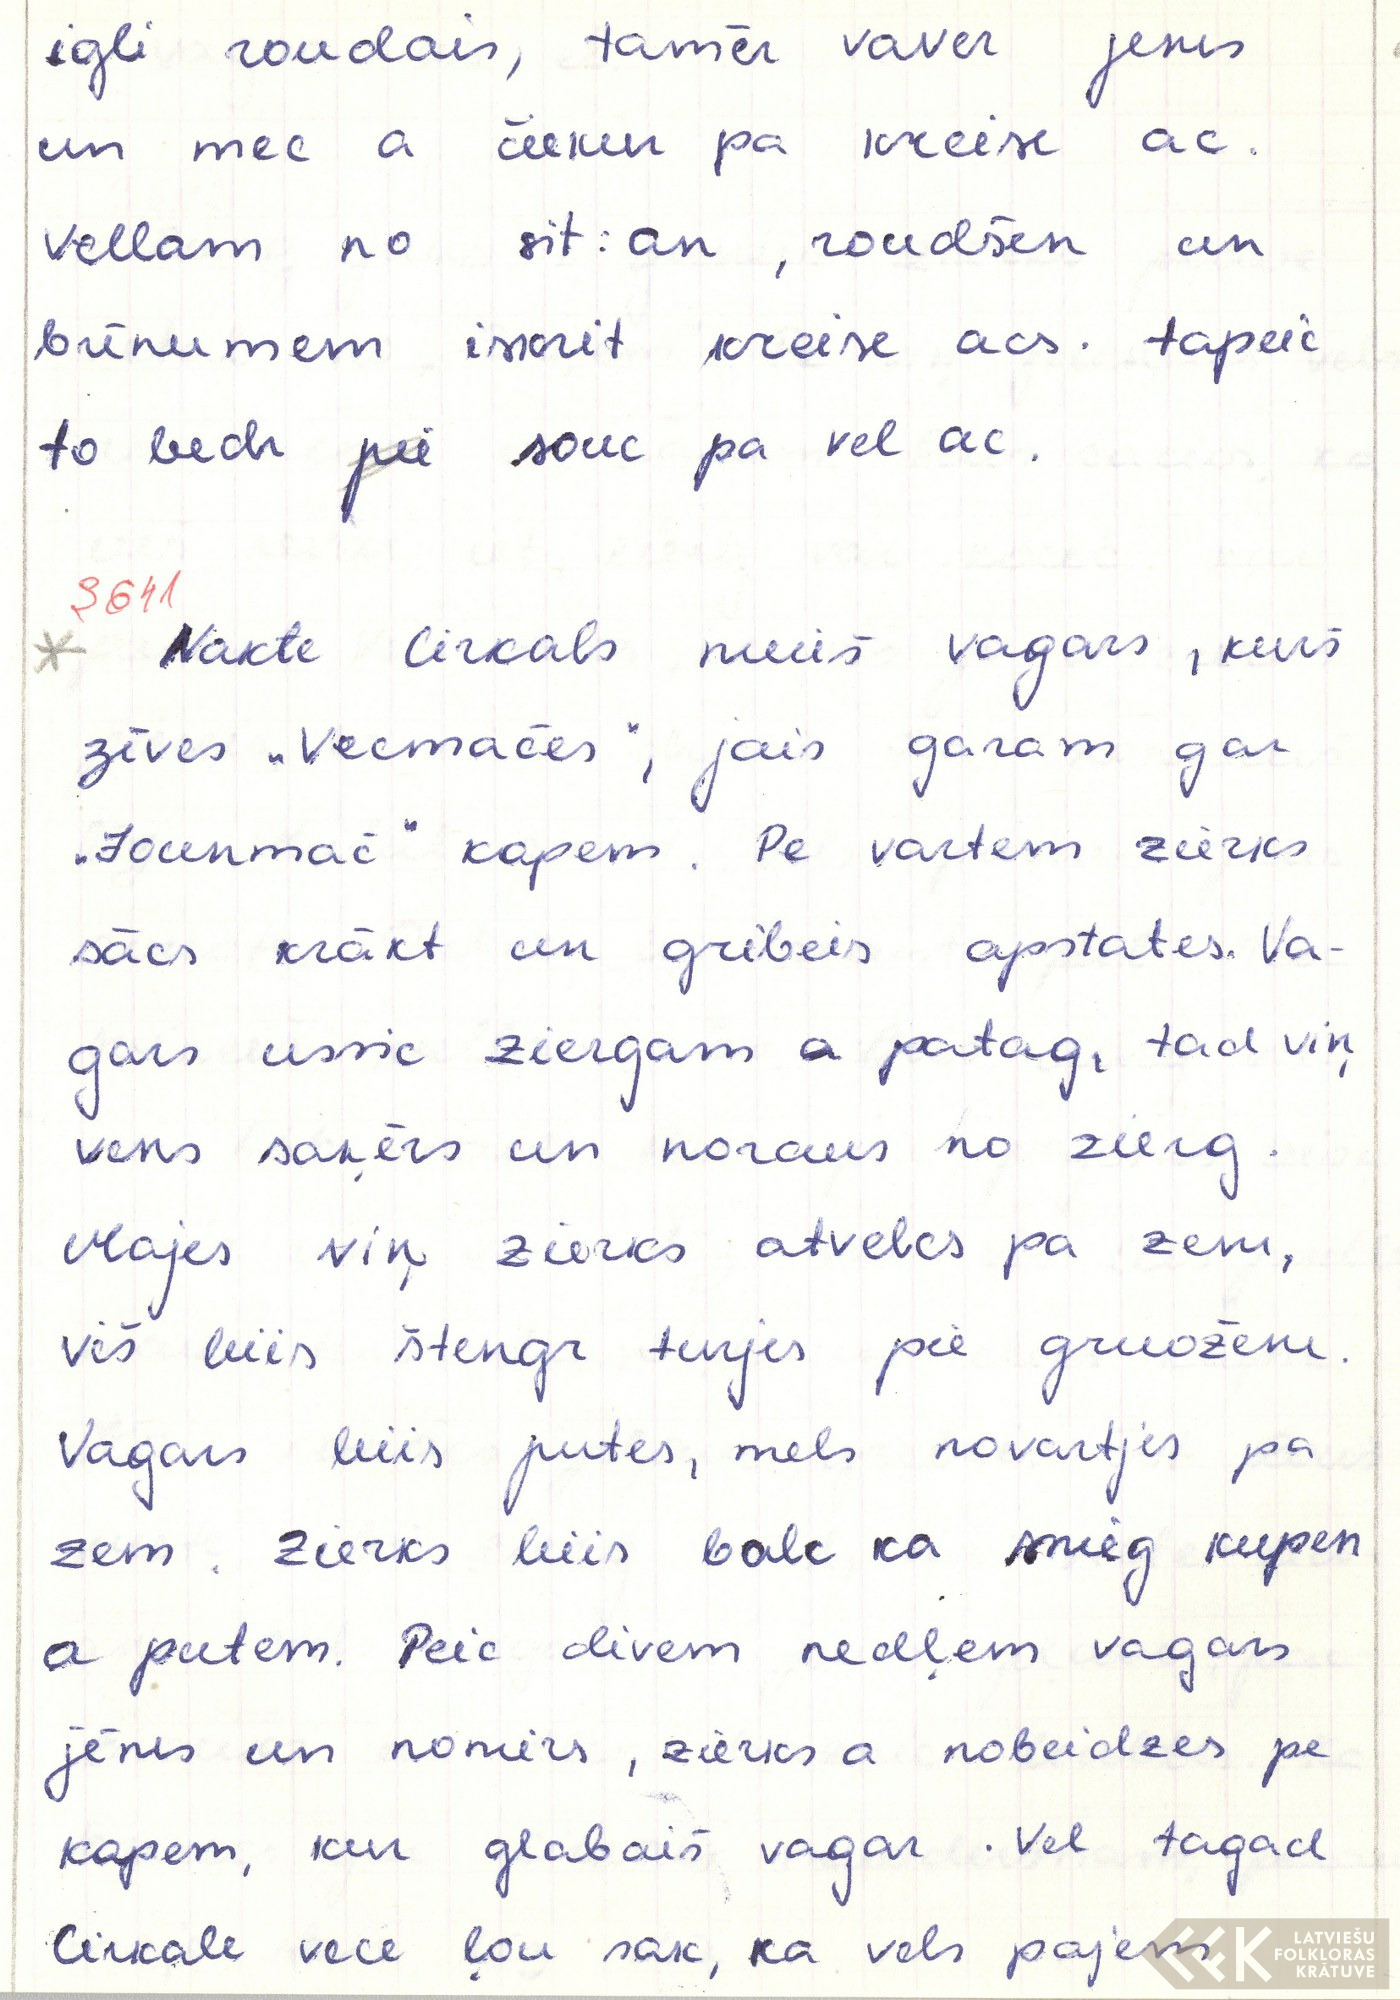 igli roudais, tamēr vaver jemis
un mec a čiekur pa kreise ac.
Vellam no sit:an, roudšen un
brīnumem iskrit kreise acs. Tapeic
to bedr pii souc pa vel ac.
3641
* Nakte Cirkals muiš vagars, kurš
zīves „Vecmačes", jais garam gar
„Jounmač" kapem. Pe vartem zierks
sācs krākt un gribeis apstates. Va-
gars ussic ziergam a patag, tad viņ
vens saķērs un noraus no zierg.
Majes viņ zierks atvelcs pa zem,
viš biis štengr turjes pie gruožem.
Vagars biis putes, mels novartjis pa
zem. Zierks biis balc ka snieg kupen
a putem. Peic divem nedļem vagars
jēmis un nomirs, zierks a nobeidzes pe
kapem, kur glabaiš vagar. Vel tagad
Cirkale vece ļou sak, ka vels pajem
LATVIEŠU
FOLKLORAS
KRĀTUVE